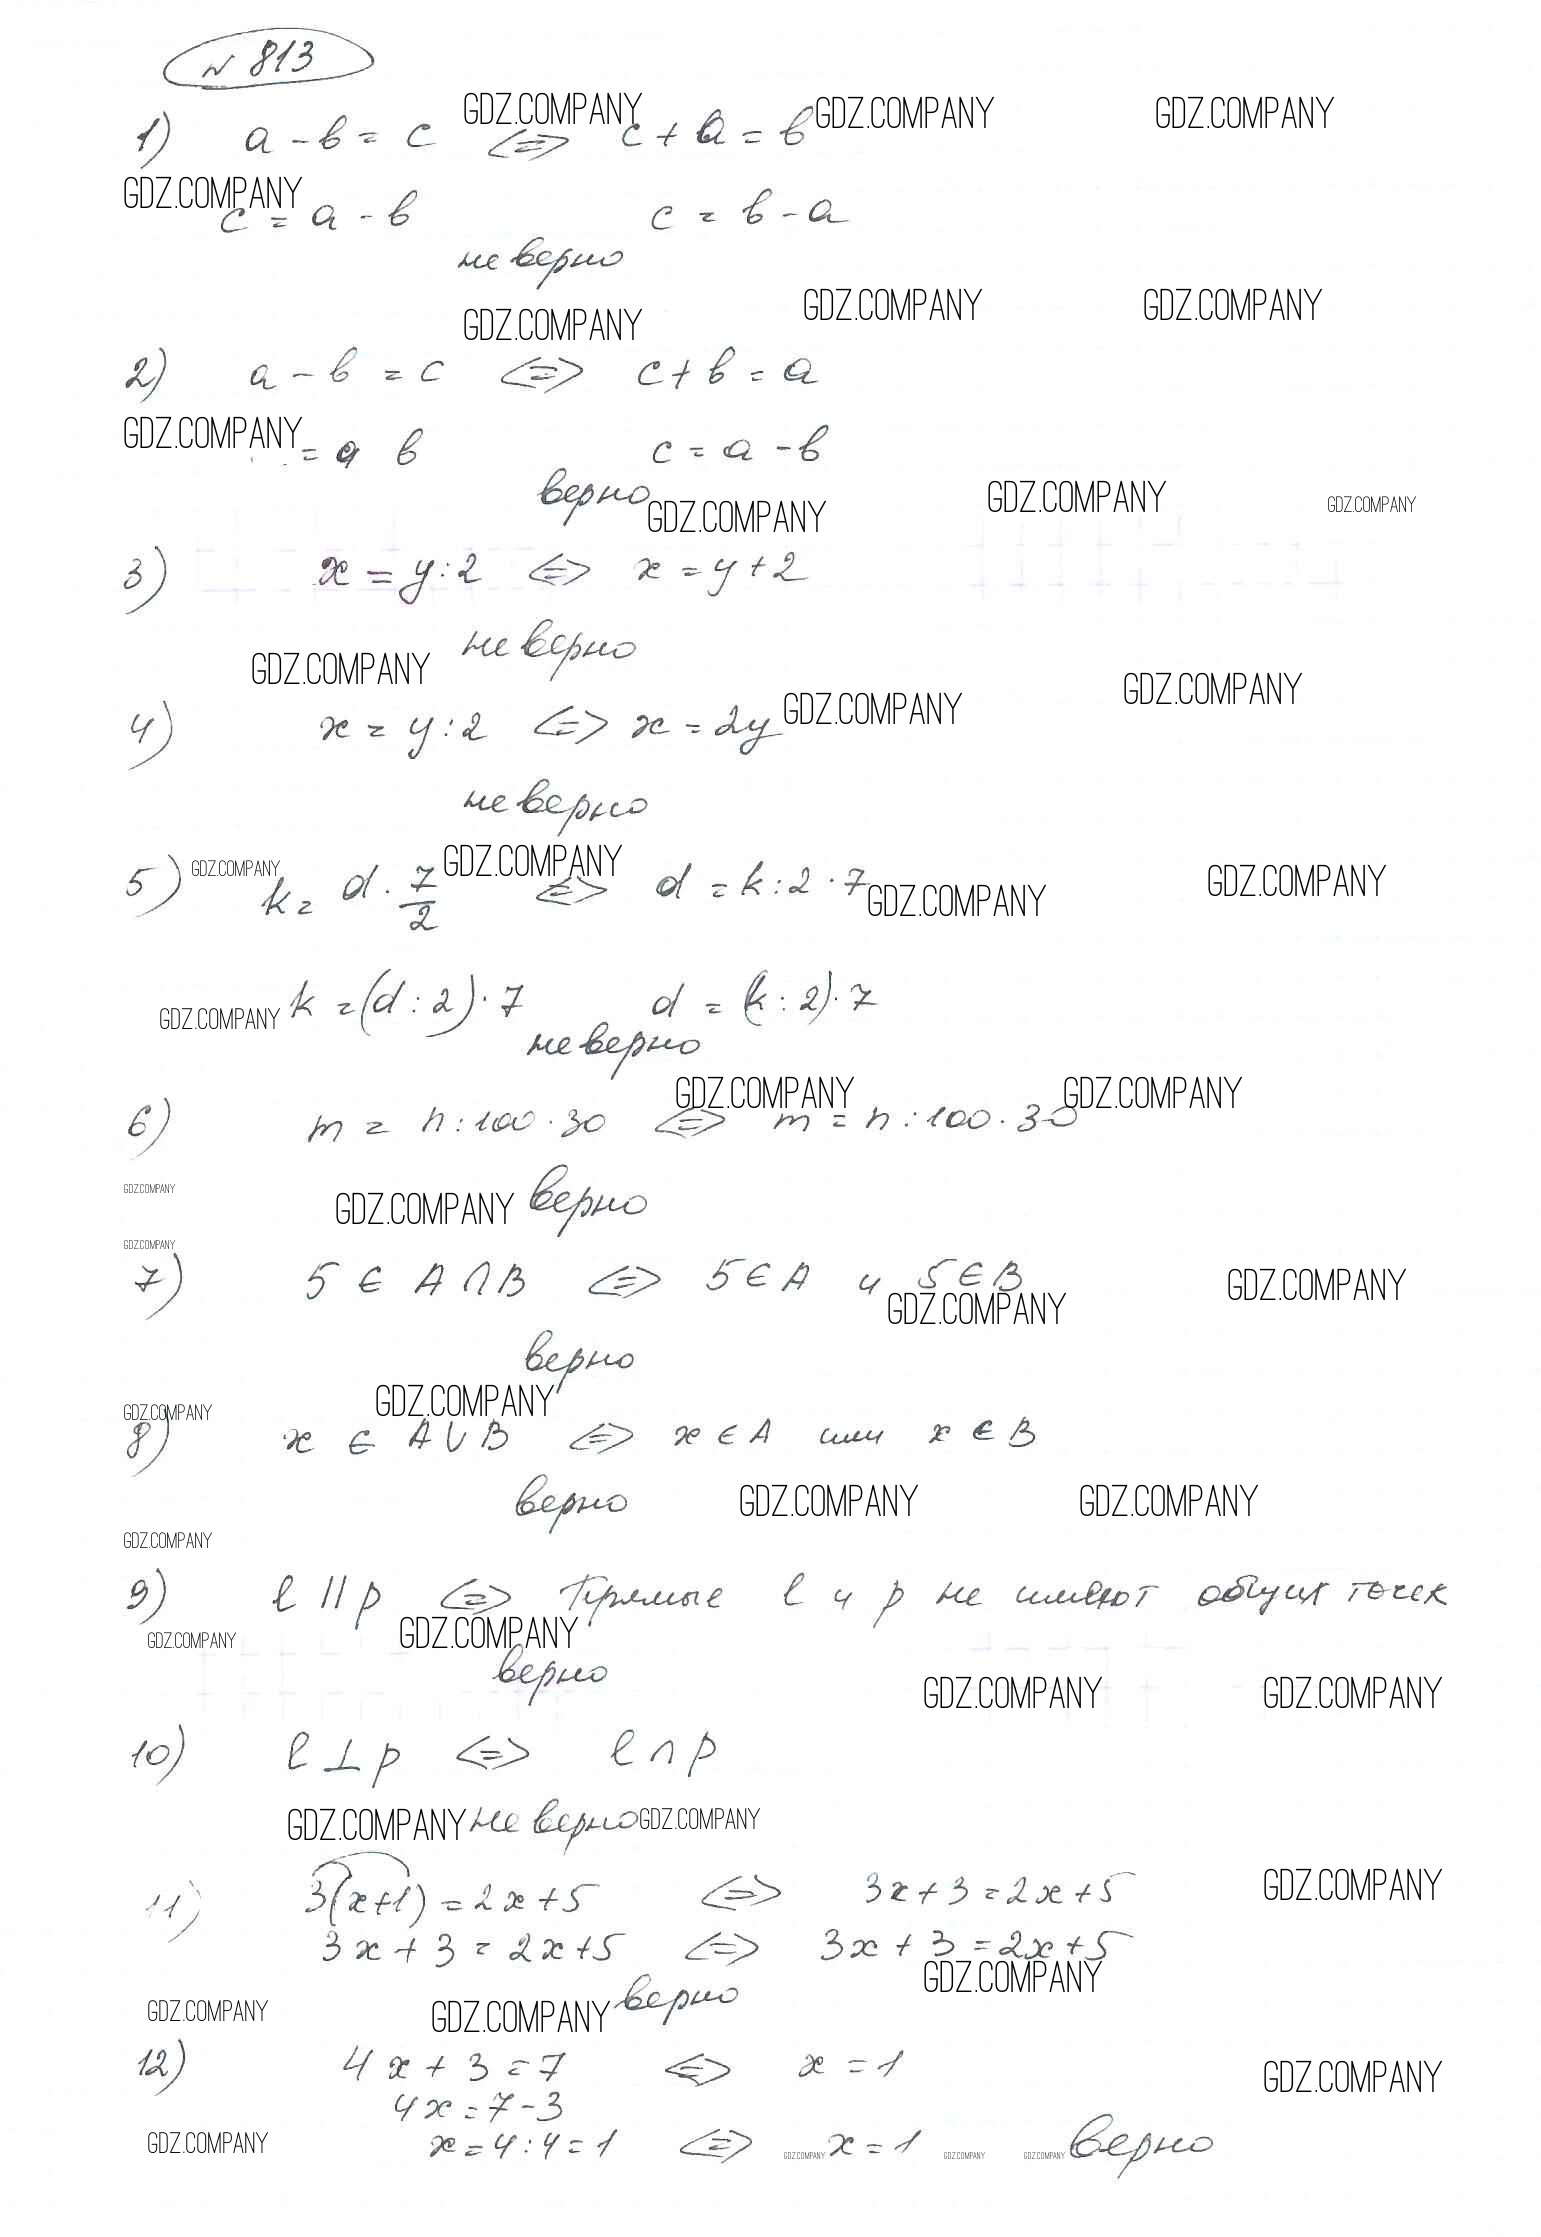 № 813
1) a - b = c <=> c + a = b
c = a - b c = b - a
неверно
2) a - b = c <=> c + b = a
= a b c = a - b
верно
3) x = y : 2 <=> x = y + 2
неверно
4) x = y : 2 <=> x = 2y
неверно
5) k = d · 7/2 <=> d = k : 2 · 7
k = (d : 2) · 7 d = (k : 2) · 7
неверно
6) m = n : 100 · 30 <=> m = n : 100 · 30
верно
7) 5 ∈ A ∩ B <=> 5 ∈ A и 5 ∈ B
верно
8) x ∈ A ∪ B <=> x ∈ A или x ∈ B
верно
9) l || p <=> Прямые l и p не имеют общих точек
верно
10) l ⊥ p <=> l ∩ p
неверно
11) 3(x+1) = 2x + 5 <=> 3x + 3 = 2x + 5
3x + 3 = 2x + 5 <=> 3x + 3 = 2x + 5
верно
12) 4x + 3 = 7 <=> x = 1
4x = 7 - 3
x = 4 : 4 = 1 <=> x = 1 верно
GDZ.COMPANY